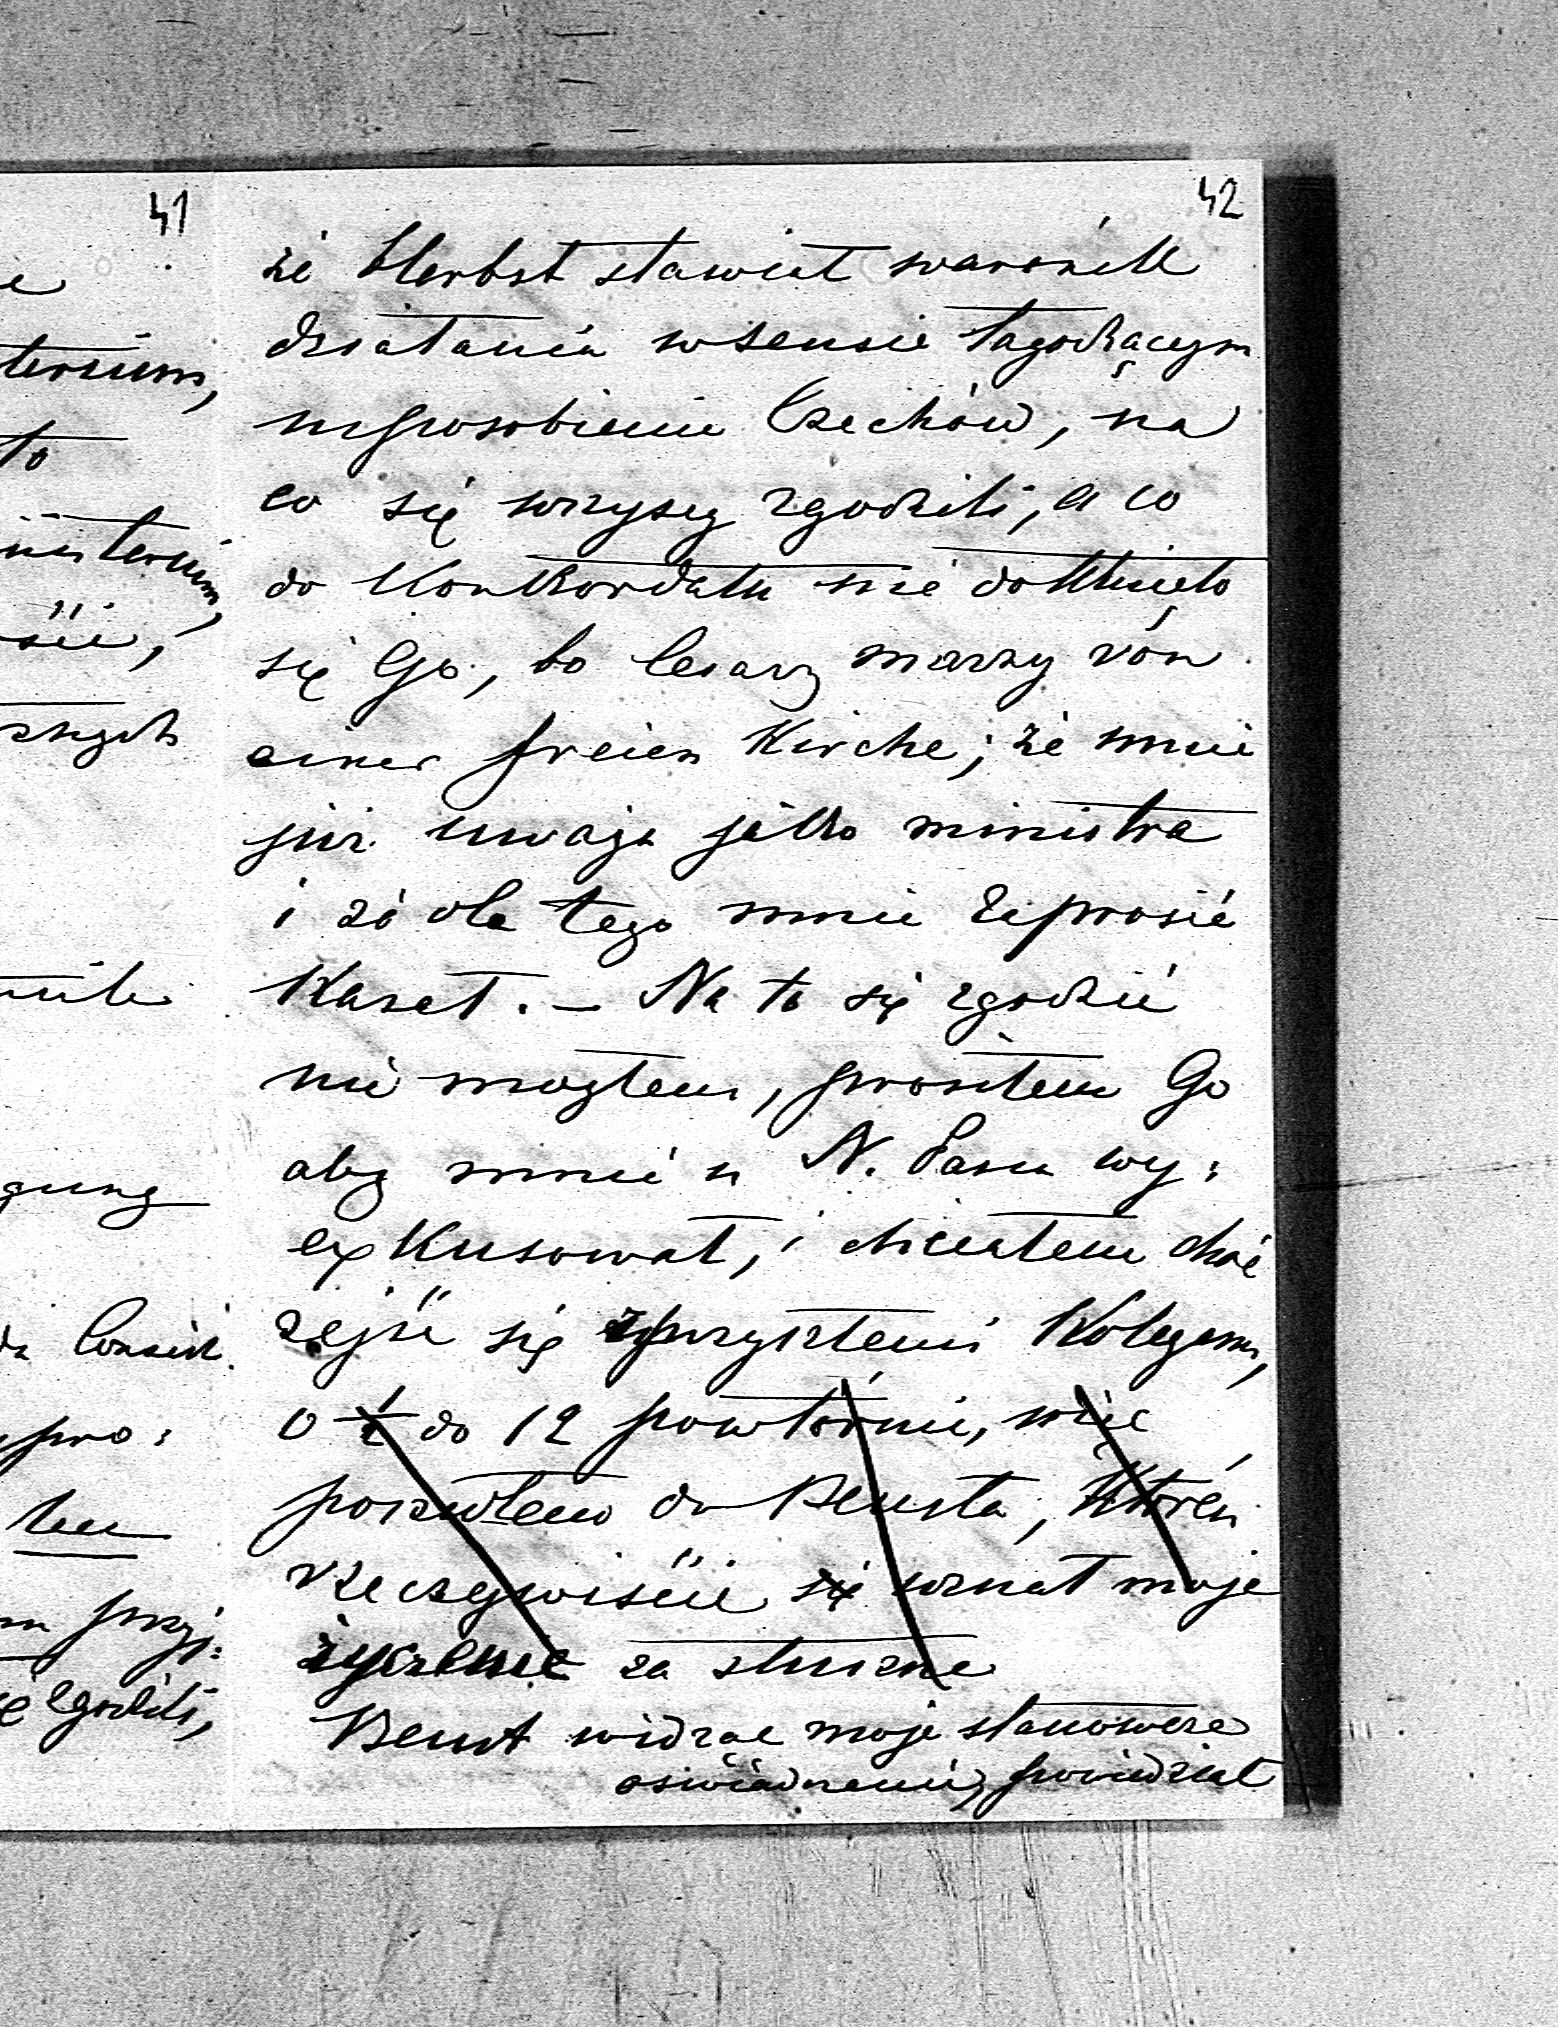 41
ie
terium,
to
inisterium,
ście,
gung
da Consid.
pro:
tem
przyj:
się zgodzili,
42
że Herbst stawiał warunek
działania w sensie łagodzącym
usposobienie Czechów, na
co się wszyscy zgodzili, a co
do Konkordatu nie dotknięto
się Go, bo Cesarz marzy von
einer freien Kirche; że mnie
już uważa jako ministra
i że dla tego mnie zaprosić
Kazał. – Na to się zgodzić
nie mogłem, prosiłem Go
aby mnie u N. Pana wy:
exkusował, i chciałem choć
zejść się z przyszłemi Kolegami,
o ½ do 12 powtórnie, więc
poszedłem do Beusta, Który
rzeczywiście się uznał moje
życzenie za słuszne
Beust widząc moje stanowcze
oświadczenie, powiedział